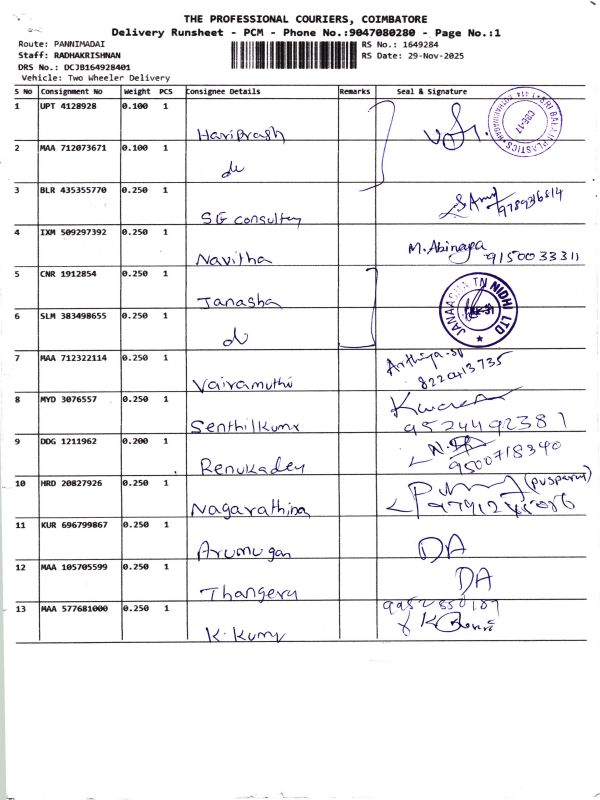 THE PROFESSIONAL COURIERS, COIMBATORE
Delivery Runsheet - PCM - Phone No.:9047080280 - Page No.:1
Route: PANNIMADAI RS No.: 1649284
Staff: RADHAKRISHNAN RS Date: 29-Nov-2025
DRS No.: DCJB164928401
Vehicle: Two Wheeler Delivery
S No Consignment No Weight PCS Consignee Details Remarks Seal & Signature
1 UPT 4128928 0.100 1
HariPrash
2 MAA 712073671 0.100 1
do
3 BLR 435355770 0.250 1
SG consultey 9789316814
4 IXM 509297392 0.250 1 M. Abinaya
Navitha 9150033311
5 CNR 1912854 0.250 1
Janasha JANAASHA TN NIDHI LTD
6 SLM 383498655 0.250 1
do
7 MAA 712322114 0.250 1 Arthiya-SP
Vairamuthu 8220413735
8 MYD 3076557 0.250 1
Senthilkumr 9524492381
9 DDG 1211962 0.200 1
Renukadey 9500718340
10 HRD 20827926 0.250 1 (Pusparaj)
Nagarathina
11 KUR 696799867 0.250 1
Arumugan DA
12 MAA 105705599 0.250 1 DA
Thangeru
13 MAA 577681000 0.250 1
K. Kumy